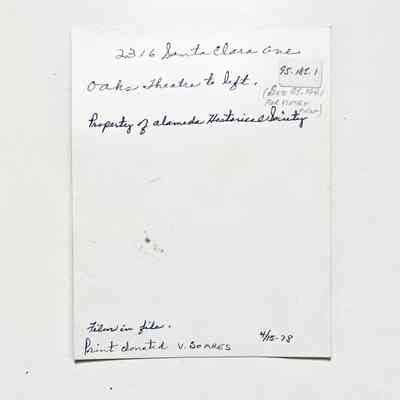 2316 Santa Clara Ave
95.182.1
Oaks Theatre to left.
(See
for
Property of Alameda Historical Society
Film in file.
Print donated V. SOARES
4/15-78